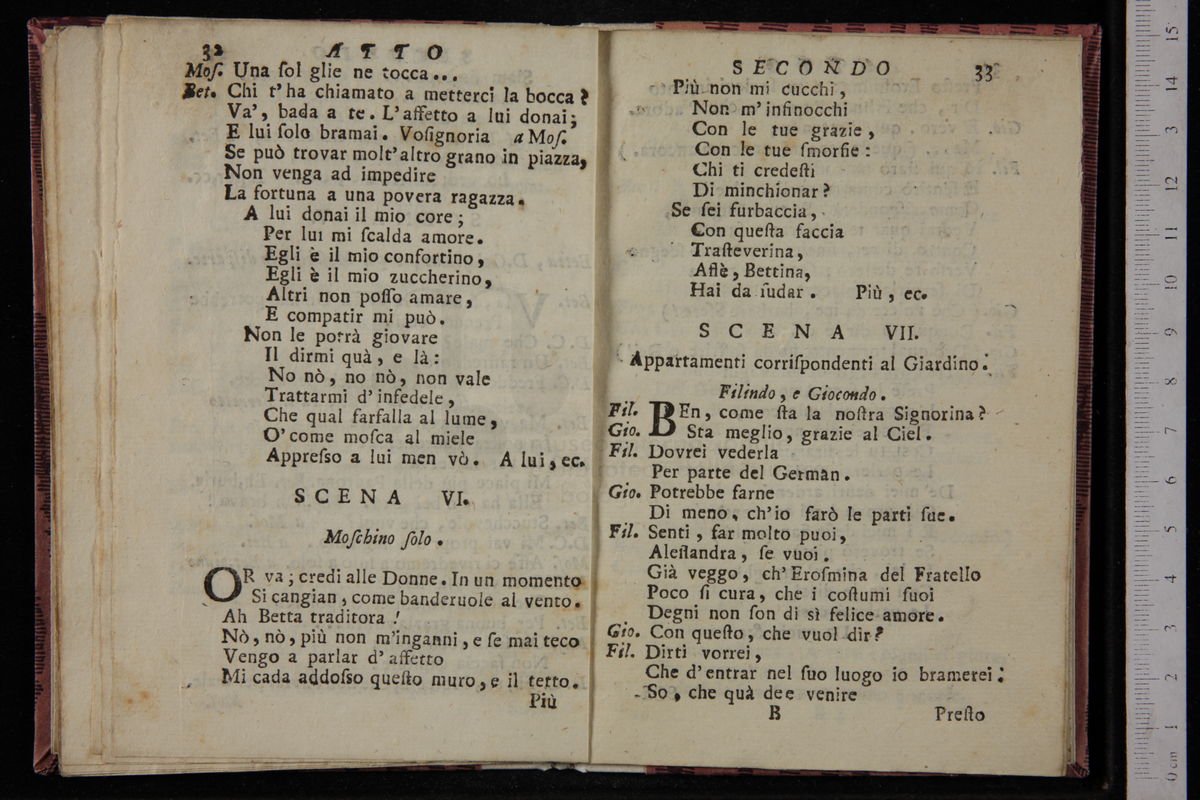 32 ATTO
Moſ. Una ſol glie ne tocca...
Bet. Chi t'ha chiamato a metterci la bocca?
Va', bada a te. L'affetto a lui donai;
E lui ſolo bramai. Voſignoria a Moſ.
Se può trovar molt'altro grano in piazza,
Non venga ad impedire
La fortuna a una povera ragazza.
A lui donai il mio core;
Per lui mi ſcalda amore.
Egli è il mio confortino,
Egli è il mio zuccherino,
Altri non poſſo amare,
E compatir mi può.
Non le potrà giovare
Il dirmi quà, e là:
No nò, no nò, non vale
Trattarmi d'infedele,
Che qual farfalla al lume,
O' come moſca al miele
Appreſso a lui men vò. A lui, ec.
SCENA VI.
Moſchino ſolo.
OR va; credi alle Donne. In un momento
Si cangian, come banderuole al vento.
Ah Betta traditora!
Nò, nò, più non m'inganni, e ſe mai teco
Vengo a parlar d'affetto
Mi cada addoſso queſto muro, e il tetto.
Più
SECONDO 33
Più non mi cucchi,
Non m'infinocchi
Con le tue grazie,
Con le tue ſmorfie:
Chi ti credeſti
Di minchionar?
Se ſei furbaccia,
Con queſta faccia
Traſteverina,
Aſſè, Bettina,
Hai da ſudar. Più, ec.
SCENA VII.
Appartamenti corriſpondenti al Giardino.
Filindo, e Giocondo.
Fil. BEn, come ſta la noſtra Signorina?
Gio. Sta meglio, grazie al Ciel.
Fil. Dovrei vederla
Per parte del German.
Gio. Potrebbe farne
Di meno, ch'io farò le parti ſue.
Fil. Senti, far molto puoi,
Aleſſandra, ſe vuoi.
Già veggo, ch'Eroſmina del Fratello
Poco ſi cura, che i coſtumi ſuoi
Degni non ſon di sì felice amore.
Gio. Con queſto, che vuol dir?
Fil. Dirti vorrei,
Che d'entrar nel ſuo luogo io bramerei:
So, che quà dee venire
B Preſto
15
14
13
12
11
10
9
8
7
6
5
4
3
2
1
0 cm